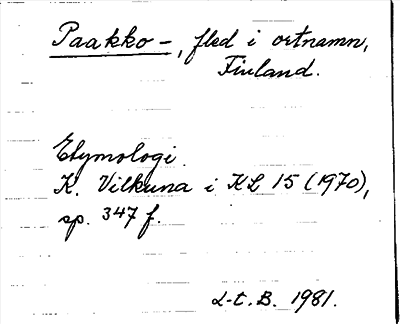 Paakko-, fled i ortnamn,
Finland.
Etymologi.
K. Vilkuna i KL 15 (1970),
sp. 347 f.
L-t.B. 1981.